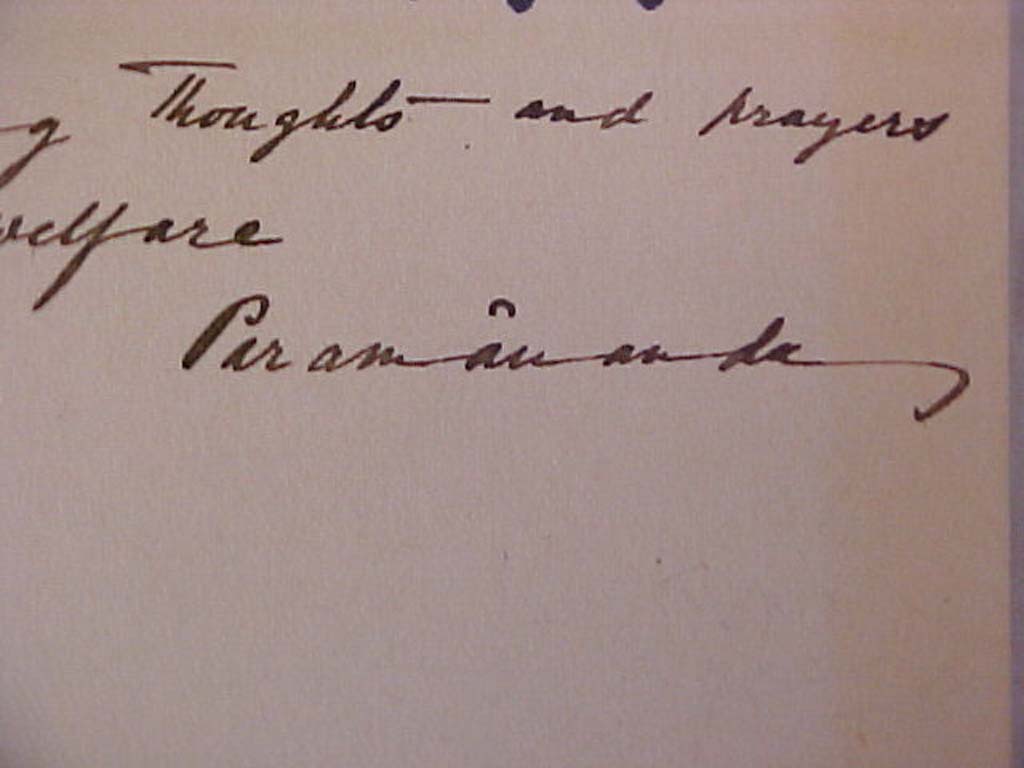 g Thoughts and prayers
welfare
Paramānanda